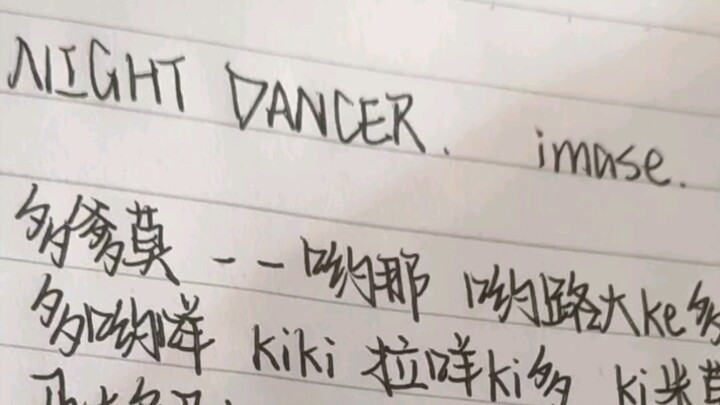 NIGHT DANCER. imase.
多爹莫 -- 哟那 哟路大ke多
多哟咩 kiki 拉咩ki多 ki米